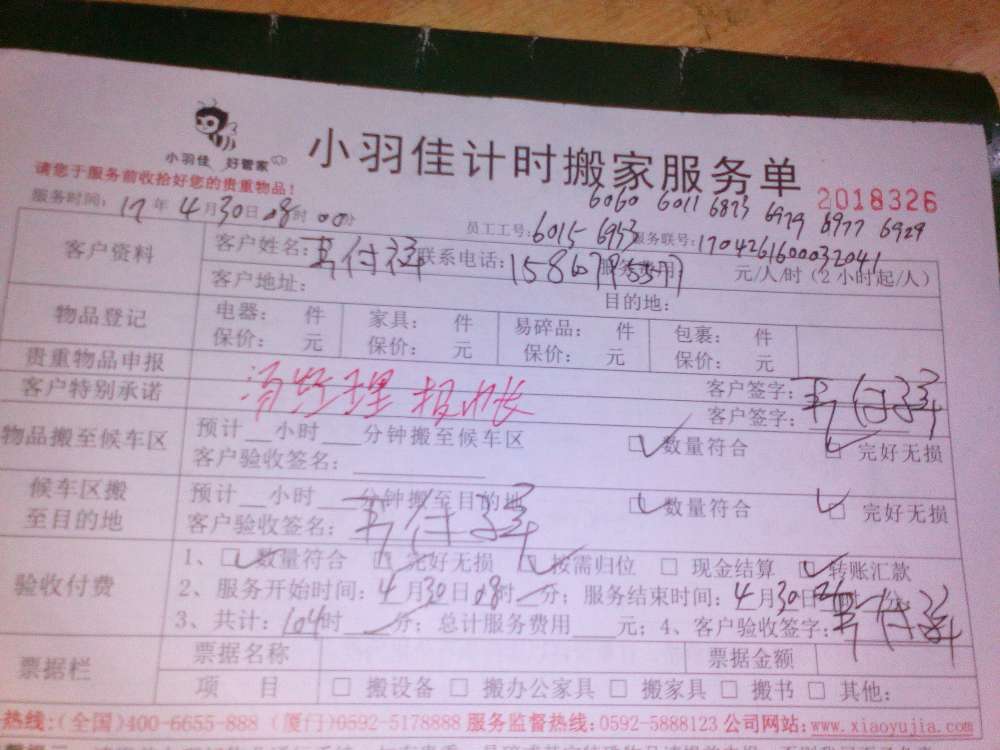 小羽佳 好管家
小羽佳计时搬家服务单
请您于服务前收拾好您的贵重物品!
2018326
6060 6011 6873 6979 6977 6929
服务时间: 17年4月30日08时00分
员工工号: 6015 6953 服务联号: 1704261600032041
客户资料
客户姓名: 付 联系电话: 服务费用: 元/人/时(2小时起/人)
客户地址: 目的地:
物品登记
电器: 件 家具: 件 易碎品: 件 包裹: 件
保价: 元 保价: 元 保价: 元 保价: 元
贵重物品申报
客户签字:
客户特别承诺
经理报帐
客户签字:
物品搬至候车区
预计__小时___分钟搬至候车区 □数量符合 □ 完好无损
客户验收签名:
候车区搬至目的地
预计__小时___分钟搬至目的地 □数量符合 □ 完好无损
客户验收签名:
验收付费
1、□ 数量符合 □ 完好无损 □ 按需归位 □ 现金结算 □ 转账汇款
2、服务开始时间: 4月30日08时__分; 服务结束时间: 4月30日
3、共计: 104时__分; 总计服务费用___元; 4、客户验收签字:
票据栏
票据名称 票据金额
项 目 □ 搬设备 □ 搬办公家具 □ 搬家具 □ 搬书 □ 其他:
热线:(全国)400-6655-888 (厦门)0592-5178888 服务监督热线:0592-5888123 公司网站:www.xiaoyujia.com